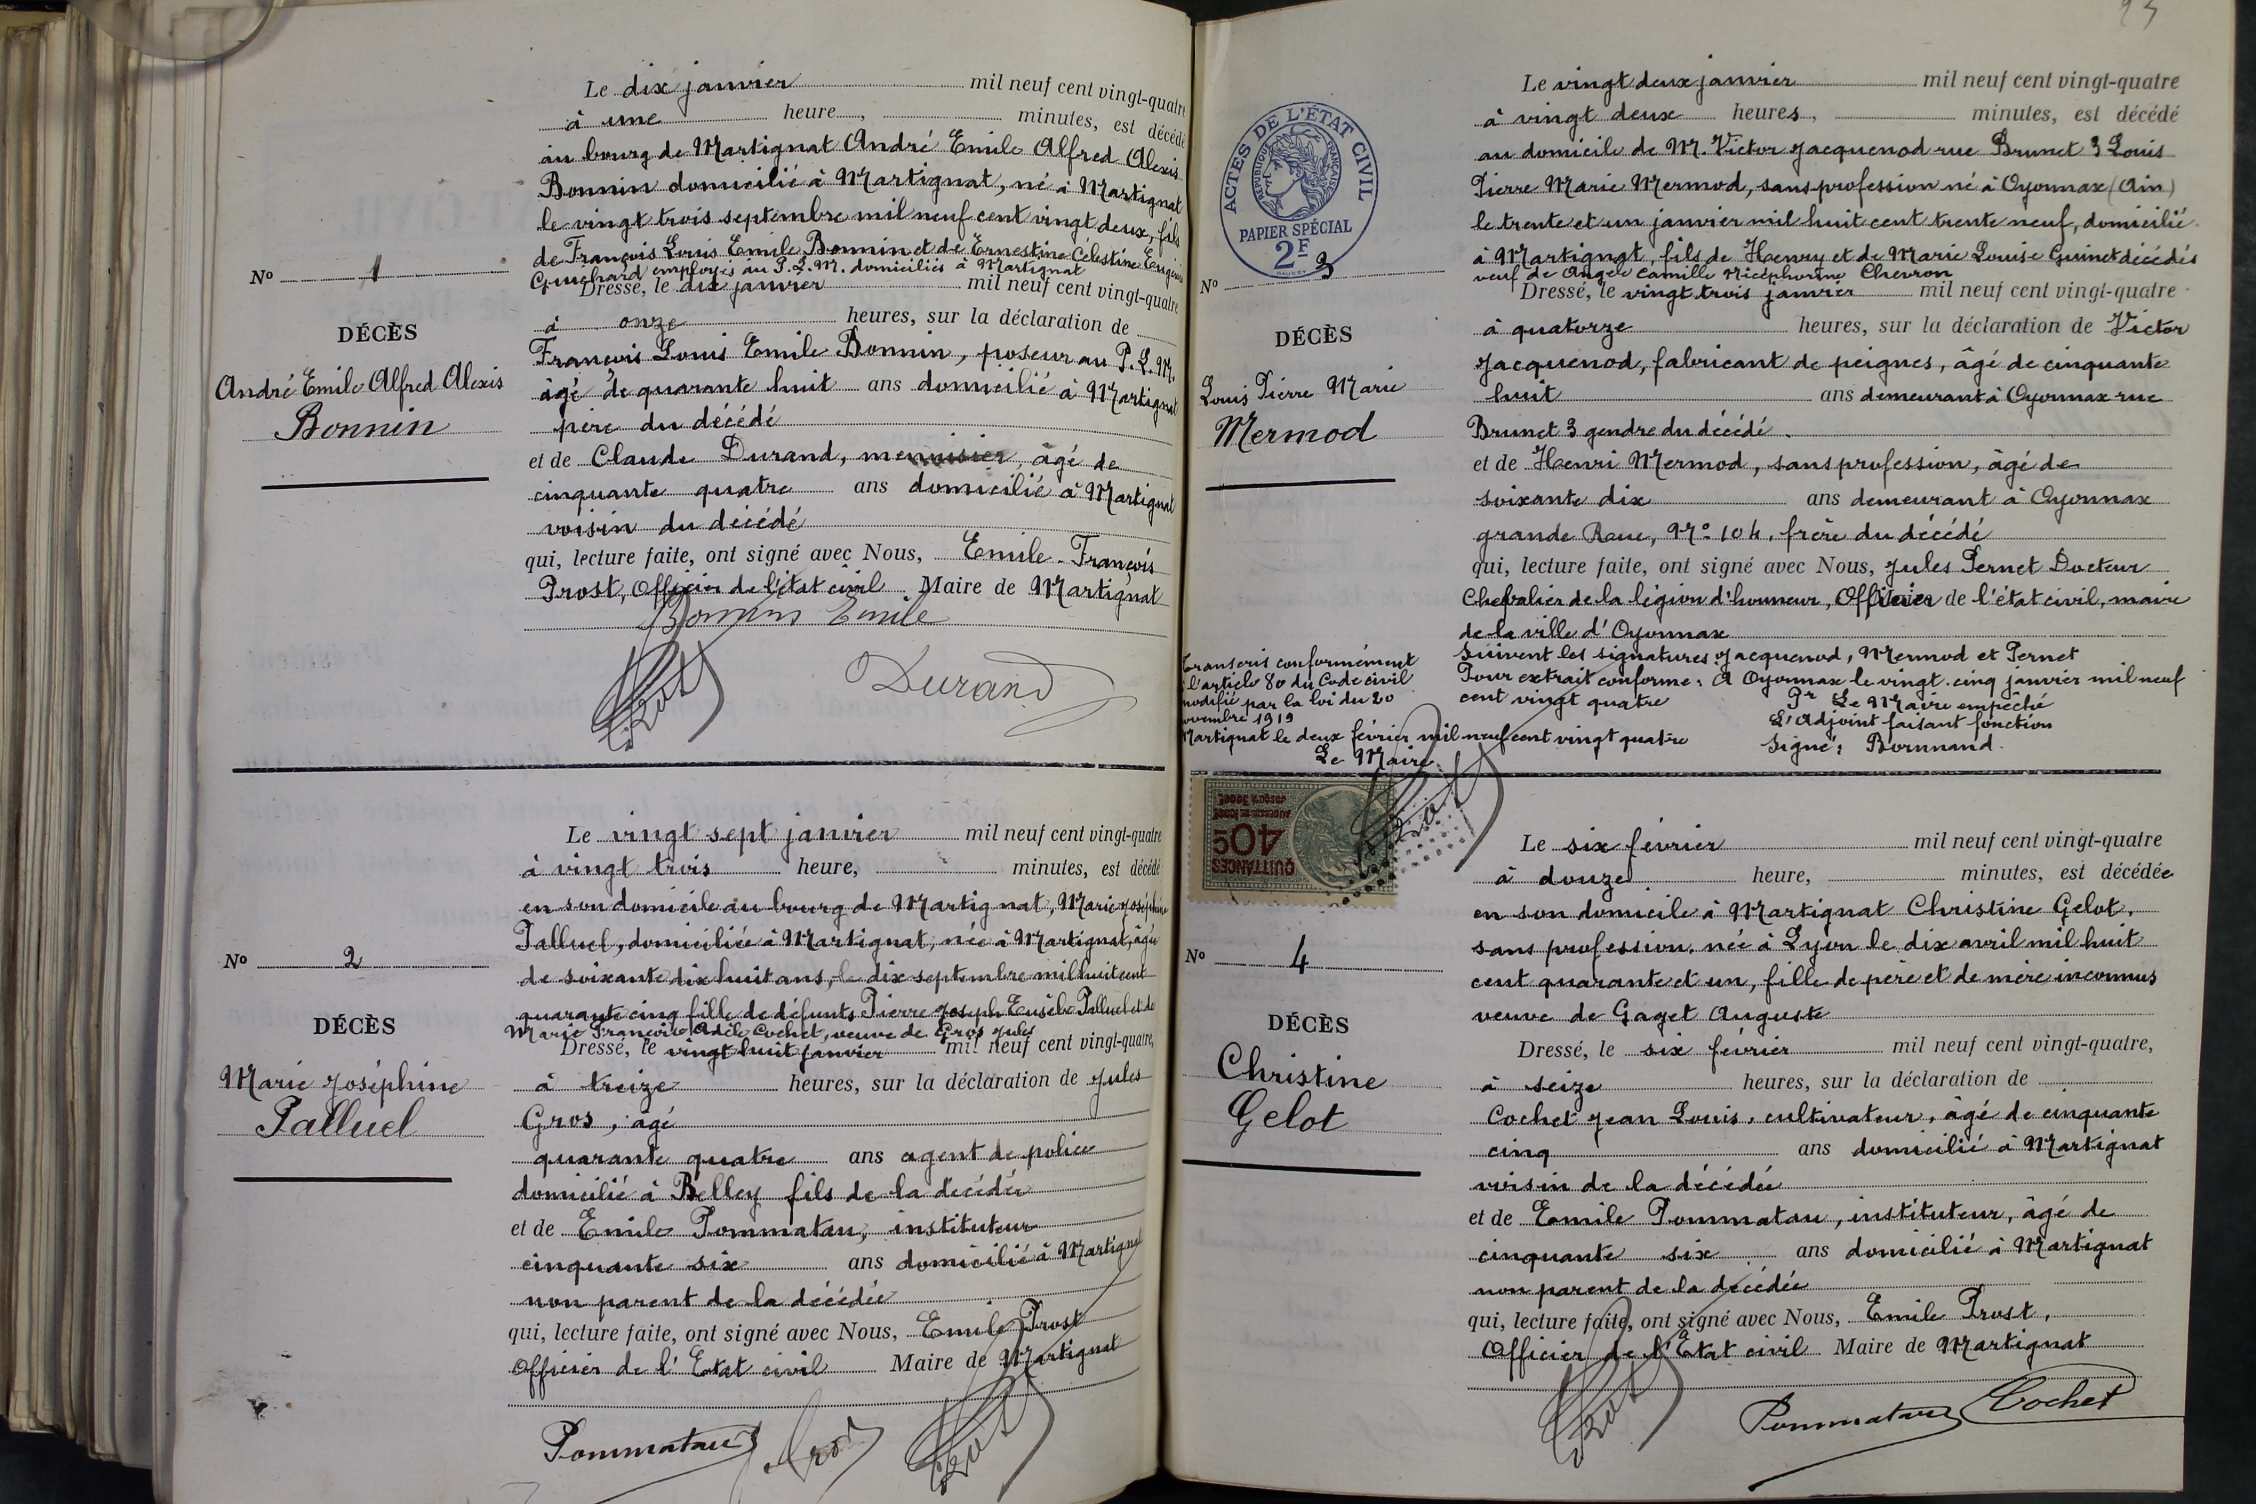 Le dix janvier mil neuf cent vingt-quatre
à une heure, minutes, est décédé
au bourg de Martignat André Emile Alfred Alexis
Bonnin domicilié à Martignat, né à Martignat
le vingt trois septembre mil neuf cent vingt deux, fils
de François Louis Emile Bonnin et de Ernestine Célestine Eugénie
Guichard employés au P.L.M. domiciliés à Martignat
Nº 1
Dressé, le dix janvier mil neuf cent vingt-quatre
à onze heures, sur la déclaration de
DÉCÈS
François Louis Emile Bonnin, poseur au P.L.M.
André Emile Alfred Alexis
Bonnin
âgé de quarante huit ans domicilié à Martignat
père du décédé
et de Claude Durand, menuisier, âgé de
cinquante quatre ans domicilié à Martignat
voisin du décédé
qui, lecture faite, ont signé avec Nous, Emile François
Prost, Officier de l'état civil Maire de Martignat
Bonnin Emile
Prost
Durand
Le vingt sept janvier mil neuf cent vingt-quatre
à vingt trois heure, minutes, est décédé
en son domicile au bourg de Martignat, Marie Joséphine
Palluel, domiciliée à Martignat, née à Martignat, âgée
Nº 2
de soixante dix huit ans, le dix septembre mil huit cent
quarante cinq fille de défunts Pierre Joseph Eusèbe Palluel et de
Marie Françoise Adèle Cochet, veuve de Gros Jules
DÉCÈS
Dressé, le vingt huit janvier mil neuf cent vingt-quatre,
Marie Joséphine
Palluel
à treize heures, sur la déclaration de Jules
Gros, âgé
quarante quatre ans agent de police
domicilié à Belley fils de la décédée
et de Emile Pommatau, instituteur
cinquante six ans domicilié à Martignat
non parent de la décédée
qui, lecture faite, ont signé avec Nous, Emile Prost
Officier de l'Etat civil Maire de Martignat
Pommatau
Gros
Prost
Le vingt deux janvier mil neuf cent vingt-quatre
à vingt deux heures, minutes, est décédé
ACTES DE L'ÉTAT CIVIL
RÉPUBLIQUE FRANÇAISE
PAPIER SPÉCIAL
2F
au domicile de M. Victor Jacquenod rue Brunet 3 Louis
Pierre Marie Mermod, sans profession né à Oyonnax (Ain)
le trente et un janvier mil huit cent trente neuf, domicilié
à Martignat, fils de Henry et de Marie Louise Guinet décédés
veuf de Angèle Camille Nicéphorine Chevron
Nº 3
Dressé, le vingt trois janvier mil neuf cent vingt-quatre
DÉCÈS
à quatorze heures, sur la déclaration de Victor
Jacquenod, fabricant de peignes, âgé de cinquante
Louis Pierre Marie
Mermod
huit ans demeurant à Oyonnax rue
Brunet 3 gendre du décédé.
et de Henri Mermod, sans profession, âgé de
soixante dix ans demeurant à Oyonnax
grande Raue, Nº 104, frère du décédé
qui, lecture faite, ont signé avec Nous, Jules Pernet Docteur
Chevalier de la légion d'honneur, Officier de l'état civil, maire
de la ville d'Oyonnax
Suivent les signatures Jacquenod, Mermod et Pernet
Pour extrait conforme: A Oyonnax le vingt-cinq janvier mil neuf
cent vingt quatre
Pr Le Maire empêché
L'Adjoint faisant fonction
Signé: Bornnand.
Transcris conformément
à l'article 80 du Code civil
modifié par la loi du 20
novembre 1919
Martignat le deux février mil neuf cent vingt quatre
Le Maire
Prost
QUITTANCES
40c
Le six février mil neuf cent vingt-quatre
à douze heure, minutes, est décédée
en son domicile à Martignat Christine Gelot,
sans profession, née à Lyon le dix avril mil huit
Nº 4
cent quarante et un, fille de père et de mère inconnus
veuve de Gaget Auguste
DÉCÈS
Dressé, le six février mil neuf cent vingt-quatre,
Christine
Gelot
à seize heures, sur la déclaration de
Cochet Jean Louis, cultivateur, âgé de cinquante
cinq ans domicilié à Martignat
voisin de la décédée
et de Emile Pommatau, instituteur, âgé de
cinquante six ans domicilié à Martignat
non parent de la décédée
qui, lecture faite, ont signé avec Nous, Emile Prost,
Officier de l'Etat civil Maire de Martignat
Prost
Pommatau
Cochet